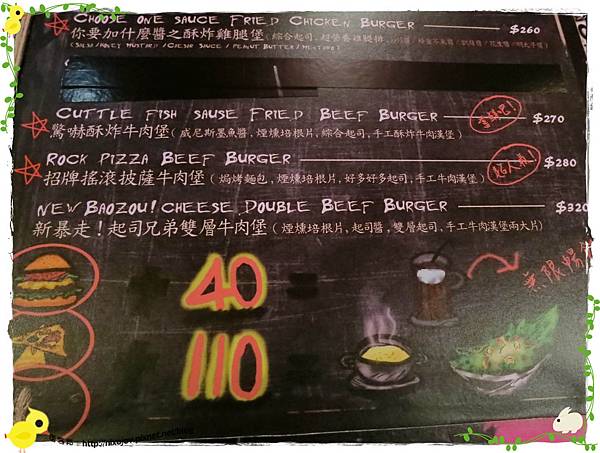 CHOOSE ONE SAUCE FRIED CHICKEN BURGER $260
你要加什麼醬之酥炸雞腿堡(綜合起司,
CUTTLE FISH SAUSE FRIED BEEF BURGER $270
驚嚇酥炸牛肉堡(威尼斯墨魚醬,煙燻培根片,綜合起司,手工酥炸牛肉漢堡)
ROCK PIZZA BEEF BURGER $280
招牌搖滾披薩牛肉堡(焗烤麵包,煙燻培根片,好多好多起司,手工牛肉漢堡)
超人氣!
NEW BAOZOU! CHEESE DOUBLE BEEF BURGER $320
新暴走!起司兄弟雙層牛肉堡(煙燻培根片,起司醬,雙層起司,手工牛肉漢堡兩大片)
40
無限暢
110